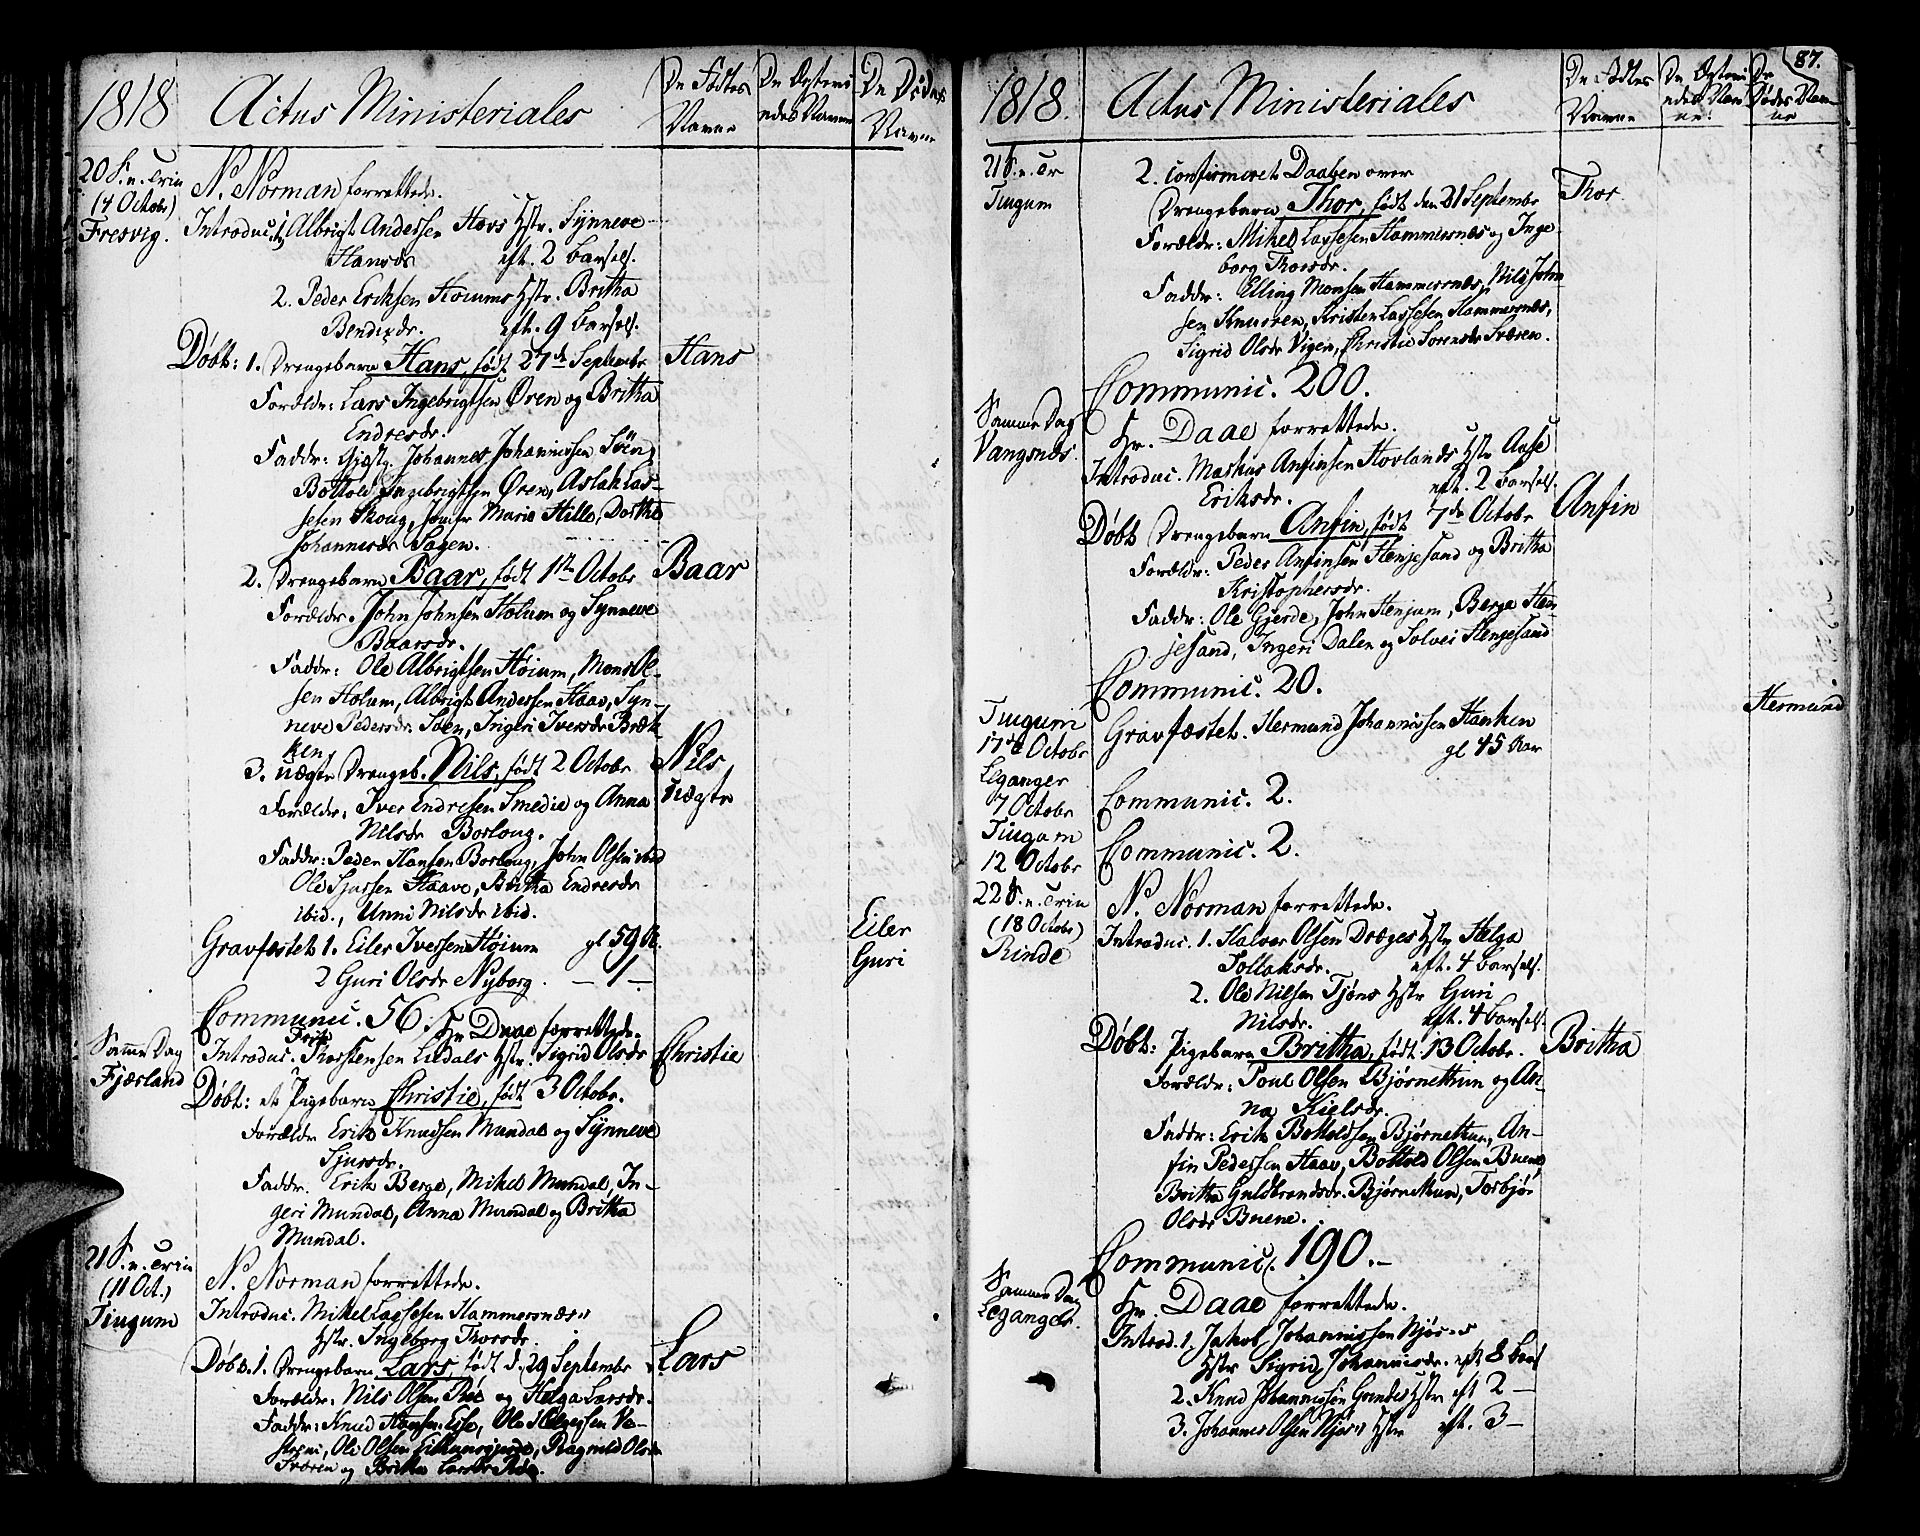 1818 Actus Ministeriales
De Fødtes Navne
De Navne
De Dødes Navne
20 S. n. Trin
(4 Octobr)
Fresvig.
N. Norman forrettede.
Introduc. Albrigt Andersen Hovs Hstr. Synneve
Hansdr eft. 2 barsels.
2. Peder Eriksen Høiums Hstr. Britha
Bendixdr. eft. 9 barsels.
Døbt: 1. Drengebarn Hans, født 27de Septembr
Hans
Forældr: Lars Ingebrigtsen Øren og Britha
Endresdr.
Faddr: Gjestg. Johannes Johannessen
Bottold Ingebrigtsen Øren, Aslak Las-
sesen Skoug, Jomfr Maria Hille, Dorthe
Johannesdr Sagen.
2. Drengebarn Baar, født 1ste Octobr
Baar
Forældr. John Johnsen Holum og Synneve
Baarsdr.
Faddr: Ole Albrigtsen Høium, Mons Ol-
sen Holum, Albrigt Andersen Haav, Syn-
neve Pedersdr. Søen, Ingeri Iversdr Bræk-
ken
3. uægte Drengeb. Nils, født 2 Octobr
Nils
uægte
Forældr: Iver Endresen Smedie og Anna
Nilsdr Borloug.
Faddr: Peder Hansen Borloug, John Olsen ibid
Ole Sjursen Haave, Britha Endresdr
ibid., Unni Nilsdr ibid.
Gravfæstet 1. Eiler Iversen Høium gl 59 Ar.
Eiler
2 Guri Olsdr Nyborg. — 1 —
Guri
Communic. 56.
Samme Dag
Fjærland
Hr Daae forrettede.
Introduc. Thorstensen Lidals Hstr. Sigrid Olsdr
Døbt: et Pigebarn Christie, født 3 Octobr.
Christie
Forældr Erik Knudsen Mundal og Synneve
Sjursdr.
Faddr. Erik Berge, Mikel Mundal, In-
geri Mundal, Anna Mundal og Britha
Mundal.
21 S. n. Trin
(11 Oct.)
Tingum
N. Norman forrettede.
Introduc. Mikel Lassesen Hammersnæs
Hstr. Ingeborg Thorsdr.
Døbt. 1. Drengebarn Lars, født d. 29 Septembr
Lars
Forældr: Nils Olsen og Helga Larsdr.
Faddr: Knud Hansen Esse, Ole
Ole Olsen Ragnild Olsdr
Sværen og Britha Larsdr
1818. Actus Ministeriales
De Fødtes Navne
De Navne
De Dødes Navne
87.
21 S. n. Tr
Tingum
2. confirmeret Daaben over
Drengebarn Thor, født den 21 Septembr
Thor
Forældr: Mikel Lassesen Hammersnæs og Inge-
borg Thorsdr.
Faddr: Elling Monsen Hammersnæs, Nils John
sen Knudren, Kristen Lassesen Hammersnæs,
Sigrid Olsdr Vigen, Christie Sorensdr Sværen.
Communic. 200.
Samme Dag
Vangsnæs.
Hr. Daae forrettede.
Introduc. Markus Anfinsen Hovlands Hstr Aase
Eriksdr. eft. 2 barsels.
Døbt Drengebarn Anfin, født 7de Octobr
Anfin
Forældr: Peder Anfinsen Henjesand og Britha
Kristophersdr.
Faddr: Ole Gjerde, John Henjum, Berge Hen-
jesand, Ingeri Dalen og Solvei Henjesand
Communic. 20.
Tingum
17de Octobr
Gravfæstet. Hermund Johannissen Hanken
gl 45 Aar
Hermund
Leganger
7 Octobr
Communic. 2.
Tingum
12 Octobr
Communic. 2.
22 S. n. Trin
(18 Octobr)
Rinde
N. Norman forrettede.
Introduc. 1. Halvor Olsen Dræges Hstr Helga
Tollaksdr. eft. 4 barsels.
2. Ole Nilsen Tjøns Hstr Guri
Nilsdr. eft. 4 barsels.
Døbt: Pigebarn Britha, født 13 Octobr.
Britha
Forældr: Poul Olsen Bjørnethun og An-
na Kielsdr.
Faddr: Erik Bottoldsen Bjørnethun, An-
fin Pedersen Haav, Bottold Olsen Buene
Britha Guldbrandsdr. Bjørnethun, Torbjør
Olsdr Buene.
Communic. 190.
Samme Dag
Leganger.
Hr. Daae forrettede.
Introd. 1. Jakob Johannissen Njøs
Hstr Sigrid Johannisdr. eft 8 bars
2. Knud Johannissen Grindes Hstr eft 2 —
3. Johannes Olsen Njøs Hstr eft. 3 —